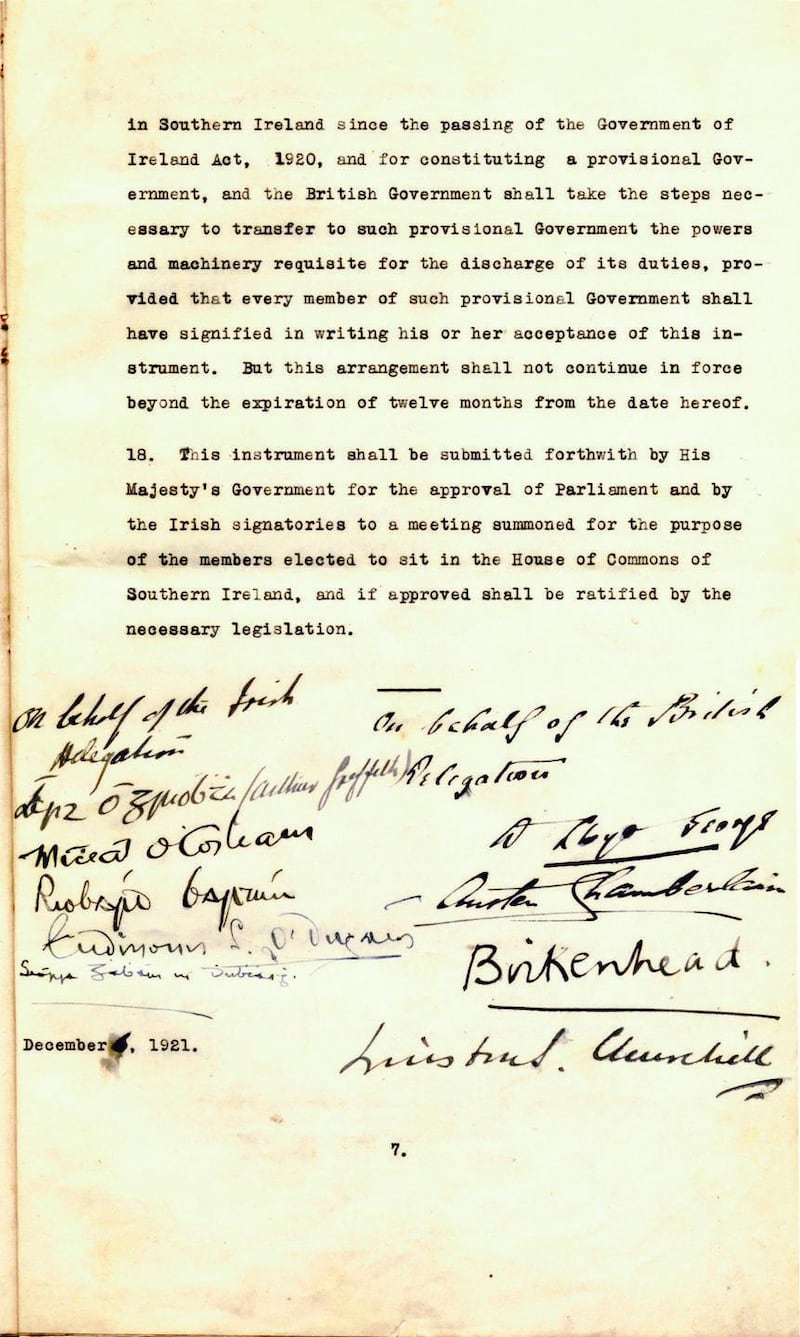 in Southern Ireland since the passing of the Government of
Ireland Act, 1920, and for constituting a provisional Gov-
ernment, and the British Government shall take the steps nec-
essary to transfer to such provisional Government the powers
and machinery requisite for the discharge of its duties, pro-
vided that every member of such provisional Government shall
have signified in writing his or her acceptance of this in-
strument. But this arrangement shall not continue in force
beyond the expiration of twelve months from the date hereof.
18. This instrument shall be submitted forthwith by His
Majesty's Government for the approval of Parliament and by
the Irish signatories to a meeting summoned for the purpose
of the members elected to sit in the House of Commons of
Southern Ireland, and if approved shall be ratified by the
necessary legislation.
On behalf of the Irish
Delegation
(Arthur Griffith)
Mícheál Ó Coileain
December 6, 1921.
On behalf of the British
Delegation
D Lloyd George
Austen Chamberlain
Birkenhead.
Winston S. Churchill
7.